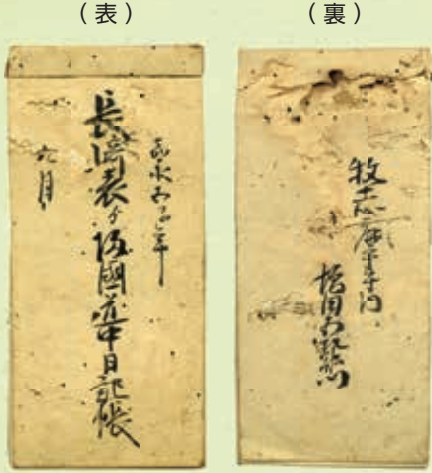 （表）
嘉永五子年
長崎表ゟ皈國道中日記帳
六月
（裏）
牧志摩守内